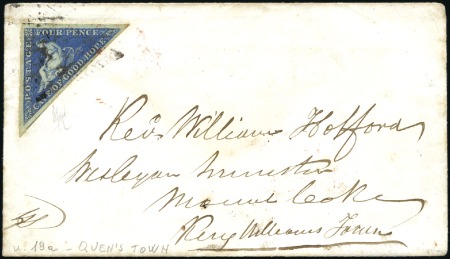 POSTAGE
FOUR PENCE
CAPE OF GOOD HOPE
Revd William Holford
Wesleyan Minister
Mount Coke
King Williams Town
n. 19a - QUEN'S TOWN